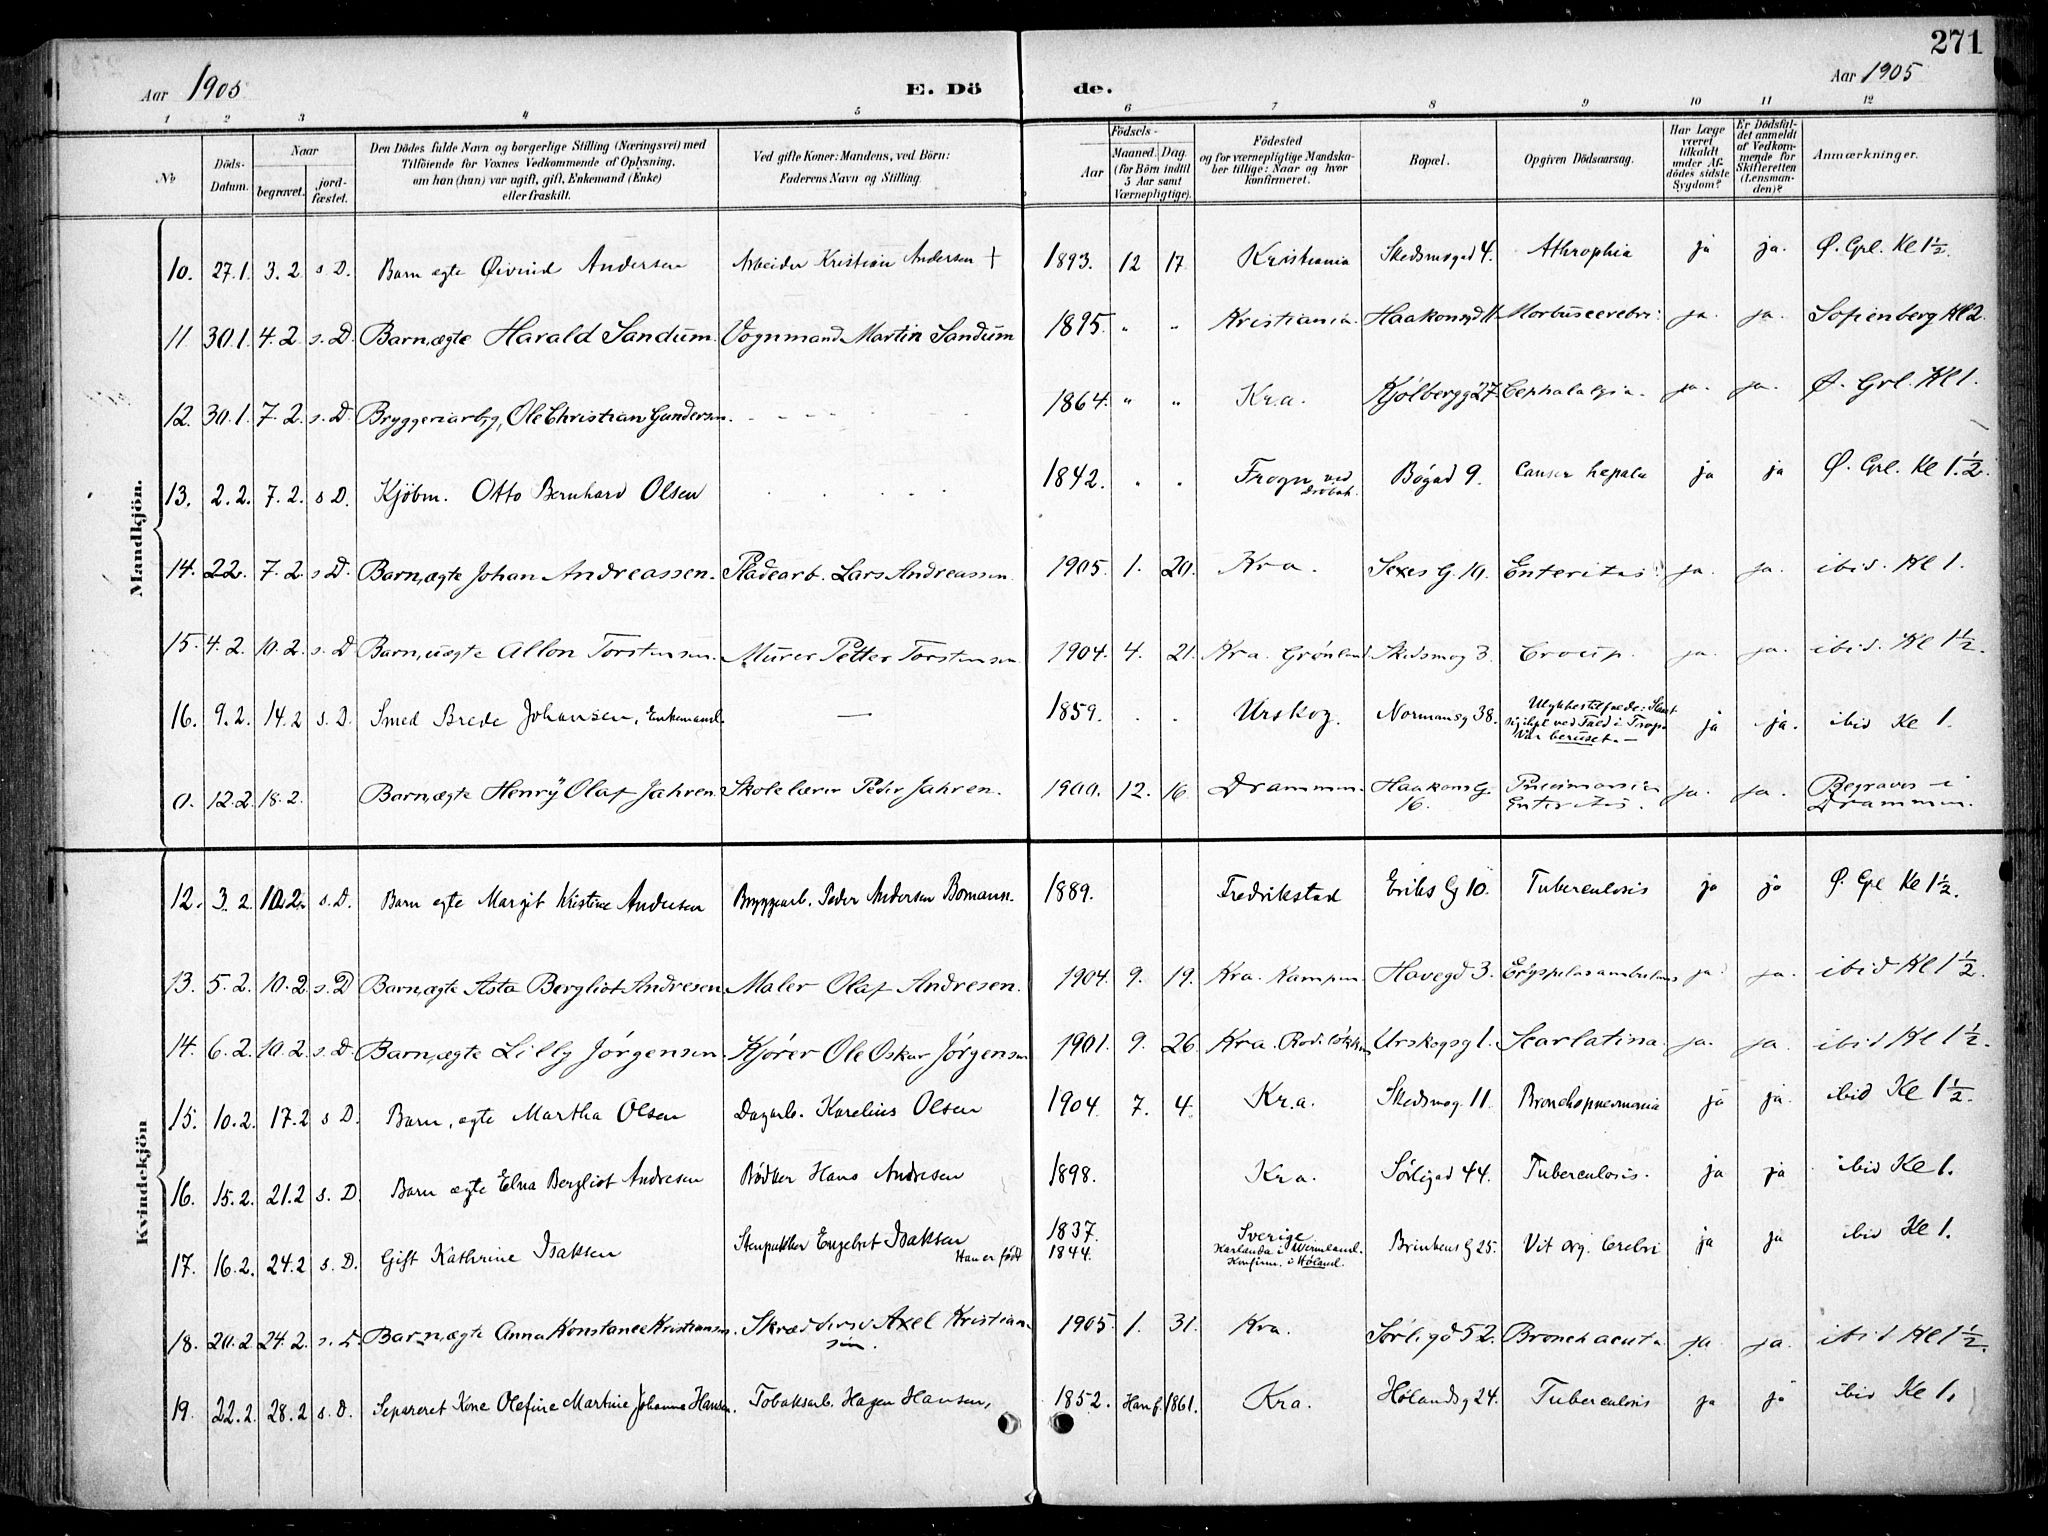 271
Aar 1905
E. Dö de.
Aar 1905
1 2 3 4 5 6 7 8 9 10 11 12
№
Döds-Datum.
Naar begravet. jord-fæstet.
Den Dödes fulde Navn og borgerlige Stilling (Næringsvei) med
Tilföiende for Voxnes Vedkommende af Oplysning,
om han (hun) var ugift, gift, Enkemand (Enke)
eller fraskilt.
Ved gifte Koner: Mandens, ved Börn:
Faderens Navn og Stilling.
Födsels-
Aar Maaned. Dag.
(for Börn indtil
5 Aar samt
Værnepligtige).
Födested
og for værnepligtige Mandska-
ber tillige: Naar og hvor
konfirmeret.
Bopæl.
Opgiven Dödsaarsag.
Har Læge
været
tilkaldt
under Af-
dödes sidste
Sygdom?
Er Dödsfal-
det anmeldt
af Vedkom-
mende for
Skifteretten
(Lensman-
den)?
Anmærkninger.
Mandkjön.
10. 27.1. 3.2 s D. Barn egte Øivind Andersen Arbeider Kristian Andersen + 1893. 12 17 Kristiania Skedsmogad 4. Athrophia ja ja. Ø. Grl. Kl 1½.
11 30.1. 4.2 s. D. Barn, ægte Harald Sandum. Vognmand Martin Sandum 1895. " " Kristiania. Haakonsgd 11. Morbus cerebri: ja. ja. Sofienberg Kl 2.
12. 30.1. 7.2. s. D. Bryggeriarbg, Ole Christian Gundersen. - - - 1864. " " Kr.a. Kjølbergg 27. Cephalalgia. ja. ja. Ø. Grl. Kl 1.
13. 2.2. 7.2. s D. Kjöbm. Otto Bernhard Olsen . . . . 1842. . . Frogn ved Drøbak. Bógad 9. Canser hepata ja ja Ø. Grl. Kl 1.½.
14. 2.2. 7.2. s D. Barn, ægte Johan Andreassen. Pladearb. Lars Andreassen. 1905. 1. 20. Kra. Sexes G. 10. Enteritis. ja. ja. ibid. Kl 1.
15. 4.2. 10.2. s. D Barn, uægte Allon Torstensen. Murer Petter Torstensen 1904. 4. 21. Kra. Grønland. Skedsmog 3. Croup. ja. ja. ibid. Kl 1½.
16. 9.2. 14.2 s. D. Smed Brede Johansen, Enkemand. — 1859. . . Urskog. Normansg 38. Ulykkestilfælde: ved Fald i Trap. Var beruset. — ja ja. ibid Kl 1.
0. 12.2. 18.2. Barn, ægte Henry Olaf Jahren Skolelærer Peder Jahren. 1900. 12. 16 Drammen. Haakons G. 16. Pneumonia Enteritis. ja. ja. Begraves i Drammen.
Kvindekjön
12. 3.2. 10.2. s. D. Barn egte Margit Kristine Andersen Bryggearb. Peder Andersen Bomann. 1889. Fredrikstad Eriks G 10. Tuberculosis ja ja Ø. Grl Kl 1½.
13. 5.2. 10.2 s. D Barn, ægte Asta Bergliot Andresen Maler Olaf Andresen. 1904. 9. 19. Kra. Kampen. Havegd 3. Erysipelas ambulans ja. ja. ibid Kl 1½.
14. 6.2. 10.2. s. D. Barn, ægte Lilly Jörgensen. Kjörer Ole Oskar Jörgensen 1901. 9. 26. Kra. Rodeløkken Urskogsg 1. Scarlatina. ja. ja. ibid Kl 1½.
15. 10.2. 17.2 s D. Barn, egte Martha Olsen Dagarb. Karelius Olsen 1904. 7. 4. Kr.a. Skedsmog. 11. Bronchopneumonia ja ja. ibid Kl 1½.
16. 15.2. 21.2 s. D. Barn egte Elna Bergliot Andresen Bödker Hans Andresen 1898. Kr.a. Sörligad 44. Tuberculosis. ja ja ibid Kl 1.
17. 16.2. 24.2 s. D. Gift Kathrine Isaksen Stenpukker Engebret Isaksen Han er född 1837. 1844. Sverige Karlanda i Wermland. Konfirm. i Høland. Brinkens G 25. Vit org. Cerebri ja ja ibid Kl 1.
18. 20.2. 24.2. s. D. Barn, ægte Anna Konstance Kristiansen. Skræddersv Axel Kristian-sen. 1905. 1. 31. Kra. Sörligd 52. Bronch acuta ja. ja. ibid Kl 1½.
19. 22.2. 28.2 s. D. Separeret Kone Olefine Martine Johanne Hansen. Tobaksarb. Hagen Hansen, 1852. Han f. 1861. Kra. Hølandsg 24. Tuberculosis ja ja ibid Kl 1.